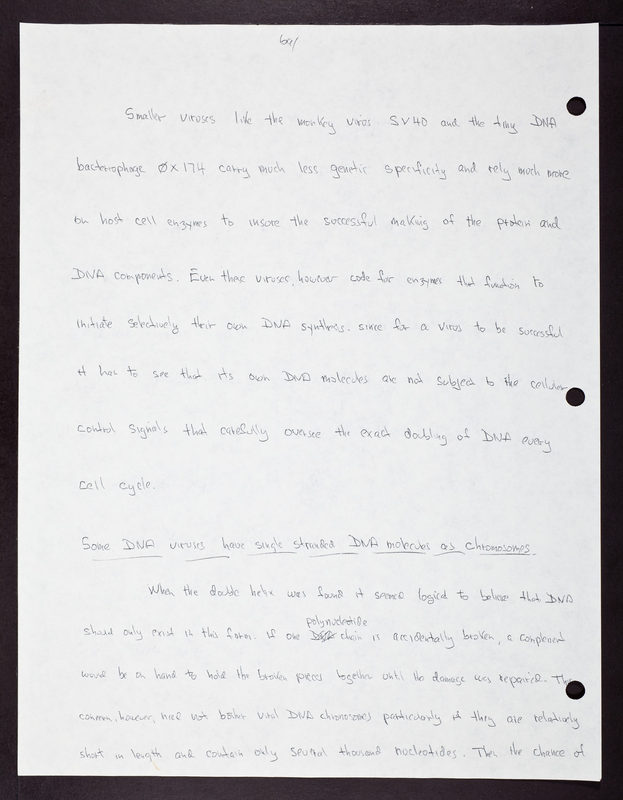 6a/
Smaller viruses like the monkey virus SV40 and the tiny DNA
bacteriophage ØX174 carry much less genetic specificity and rely much more
on host cell enzymes to insure the successful making of the protein and
DNA components. Even these viruses, however code for enzymes that function to
initiate selectively their own DNA synthesis. since for a virus to be successful
it has to see that its own DNA molecules are not subject to the cellular
control signals that carefully oversee the exact doubling of DNA every
cell cycle.
Some DNA viruses have single stranded DNA molecules as chromosomes.
When the double helix was found it seemed logical to believe that DNA
polynucleotide
should only exist in this form. If one chain is accidentally broken, a complement
would be on hand to hold the broken pieces together until the damage was repaired. This
concern, however, need not bother viral DNA chromosomes particularly if they are relatively
short in length and contain only several thousand nucleotides. Then the chance of